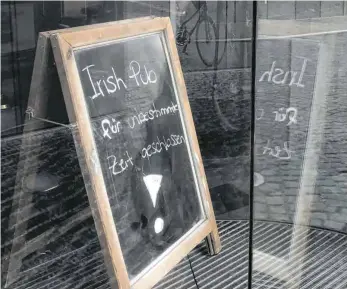 Irish Pub
für unbestimmte
Zeit geschlossen
!
Irish
für
Zeit